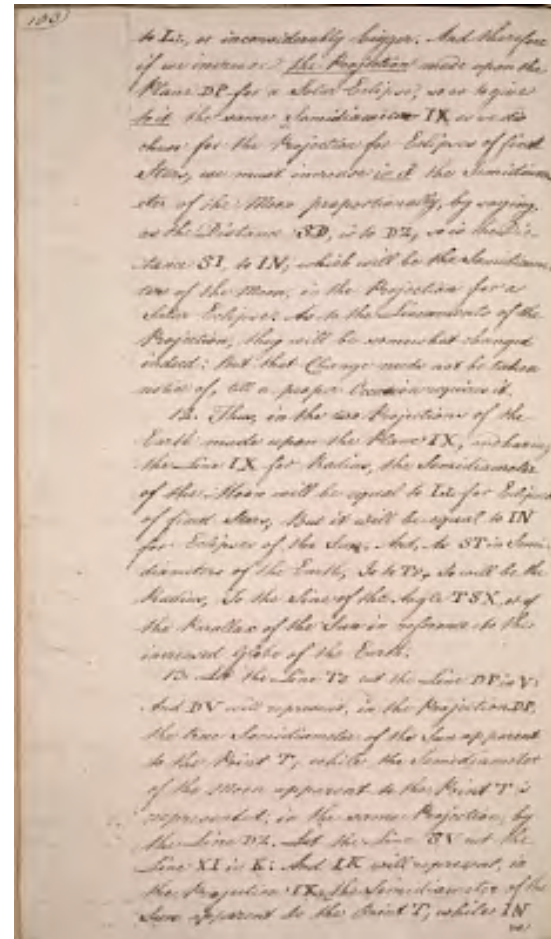 103)
to LL, or inconsiderably bigger. And therefore
if we increase the Projection made upon the
Plane DP for a Solar Eclipse, so as to give
to it the same Semidiameter IX as we did
chuse for the Projection for Eclipses of fixed
Stars, we must increase in it the Semidiam-
eter of the Moon proportionally, by saying,
as the Distance SD, is to DZ, so is the Dis-
tance SI, to IN, which will be the Semidiame-
ter of the Moon, in the Projection for a
Solar Eclipse. As to the Lineaments of the
Projection, they will be somewhat changed
indeed: But that Change needs not be taken
notice of, till a proper Occasion requires it.
12. Thus, in the two Projections of the
Earth made upon the Plane IX, and having
the Line IX for Radius, the Semidiameter
of the Moon will be equal to LL for Eclipses
of fixed Stars, But it will be equal to IN
for Eclipses of the Sun. And, As ST in Semi-
diameters of the Earth, Is to so will be the
Radius, To the Sine of the Angle TSX, or of
the Parallax of the Sun in reference to this
increased Globe of the Earth.
13. Let the Line cut the Line DP in V:
And DV will represent, in the Projection DP,
the true Semidiameter of the Sun apparent
to the Point T, while the Semidiameter
of the Moon apparent to the Point T is
represented, in the same Projection, by
the Line DZ. Let the Line SV cut the
Line XI in K: And IK will represent, in
the Projection IX, the Semidiameter of the
Sun apparent to the Point T, while IN